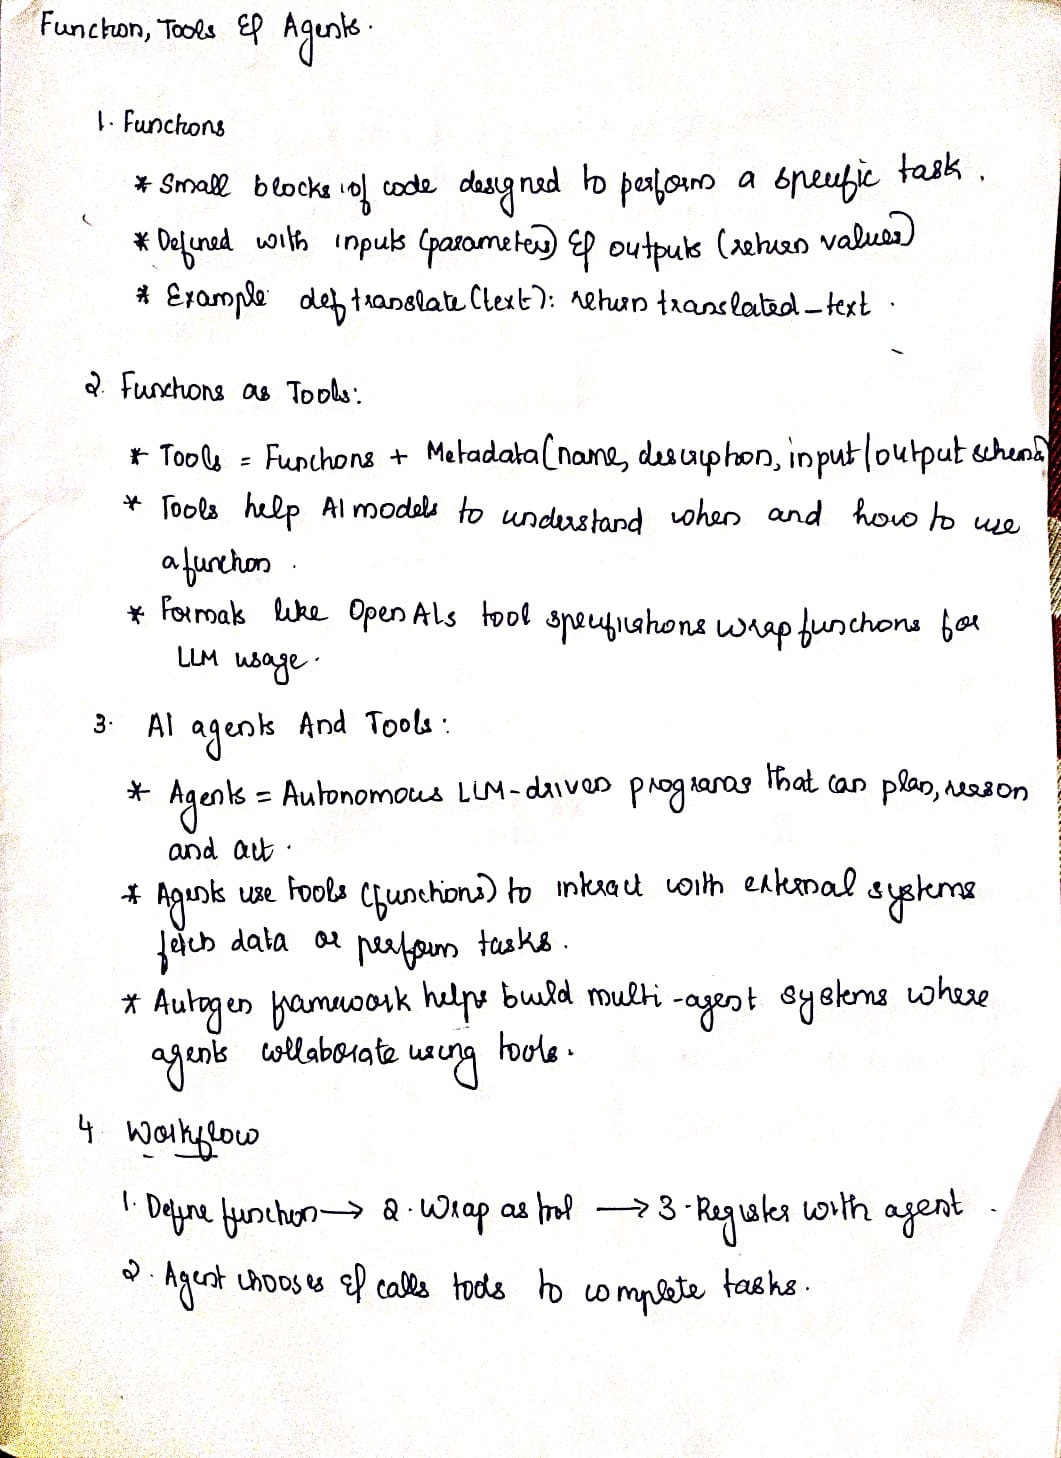 Function, Tools & Agents.
1. Functions
* Small blocks of code designed to perform a specific task.
* Defined with inputs (parameters) & outputs (return values)
* Example def translate (text): return translated_text.
2. Functions as Tools:
* Tools = Functions + Metadata (name, description, input/output schema)
* Tools help AI models to understand when and how to use
a function.
* Formats like Open AIs tool specifications wrap functions for
LLM usage.
3. AI agents And Tools:
* Agents = Autonomous LLM-driven programs that can plan, reason
and act.
* Agents use tools (functions) to interact with external systems
fetch data or perform tasks.
* Autogen framework helps build multi-agent systems where
agents collaborate using tools.
4 Workflow
1. Define function → 2. Wrap as tool → 3. Register with agent.
2. Agent chooses & calls tools to complete tasks.